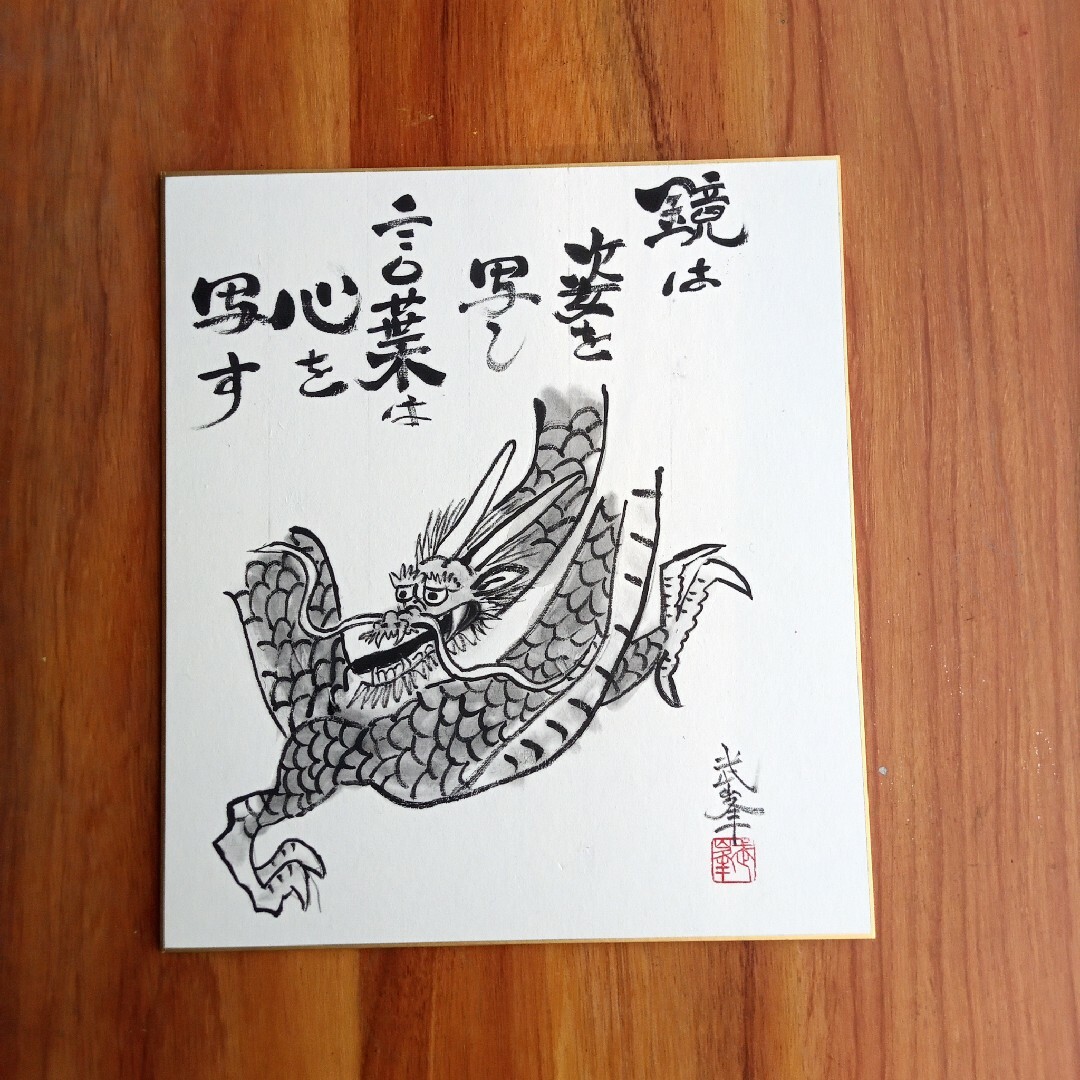 鏡は
姿を
写し
言葉は
心を
写す
武峯
武峯